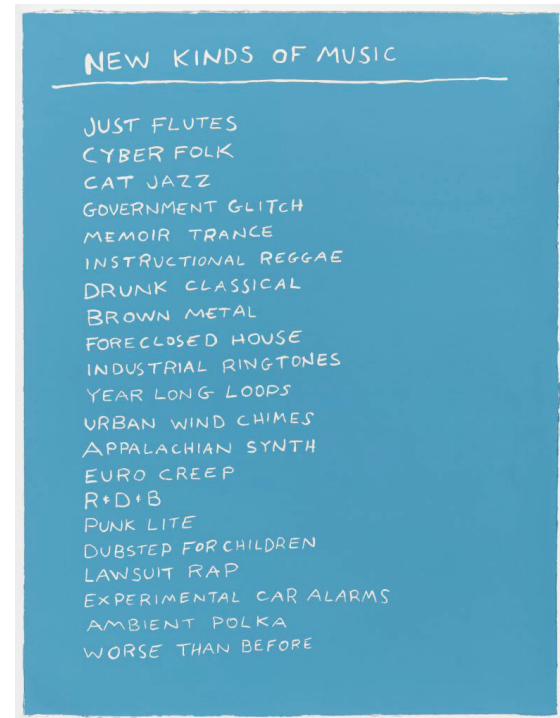 NEW KINDS OF MUSIC
JUST FLUTES
CYBER FOLK
CAT JAZZ
GOVERNMENT GLITCH
MEMOIR TRANCE
INSTRUCTIONAL REGGAE
DRUNK CLASSICAL
BROWN METAL
FORECLOSED HOUSE
INDUSTRIAL RINGTONES
YEAR LONG LOOPS
URBAN WIND CHIMES
APPALACHIAN SYNTH
EURO CREEP
R+D+B
PUNK LITE
DUBSTEP FOR CHILDREN
LAWSUIT RAP
EXPERIMENTAL CAR ALARMS
AMBIENT POLKA
WORSE THAN BEFORE